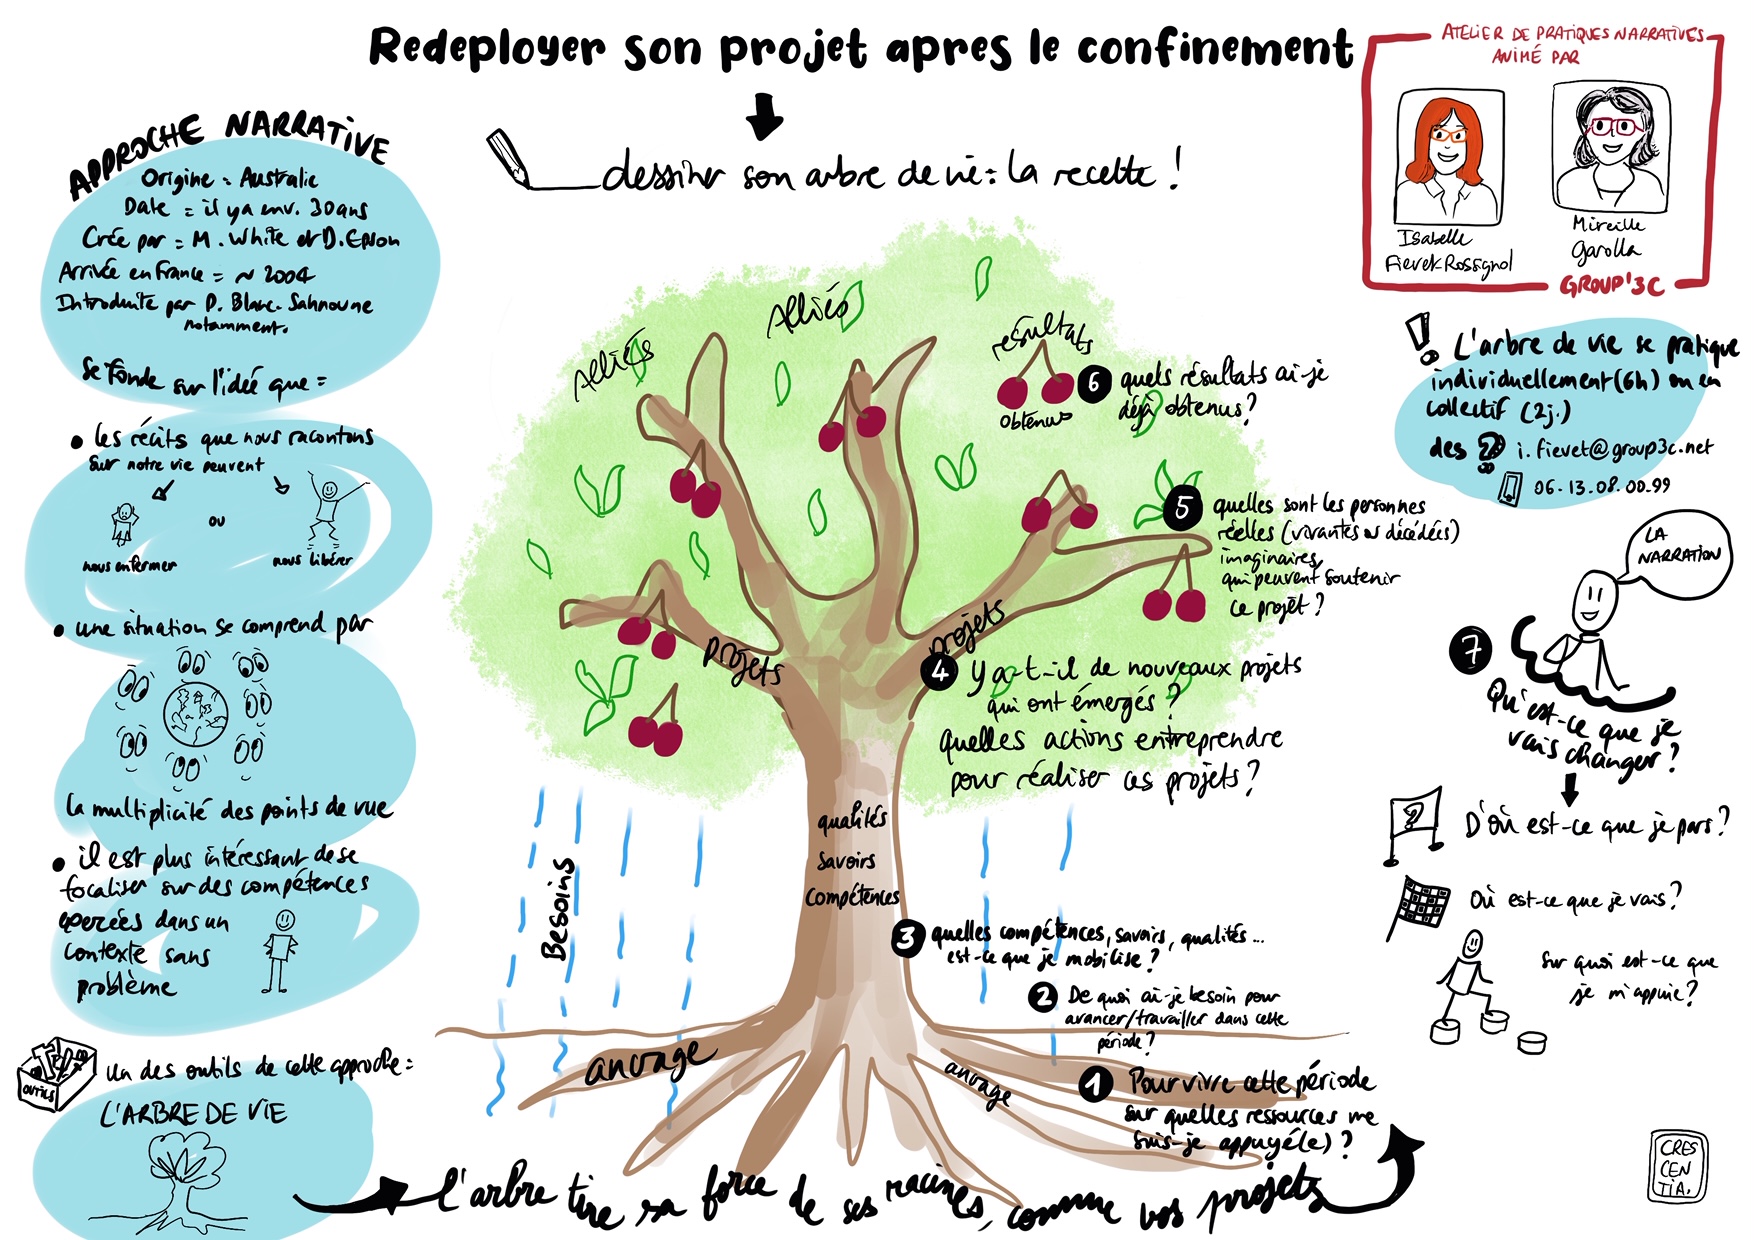 Redeployer son projet apres le confinement
dessiner son arbre de vie : la recette !
ATELIER DE PRATIQUES NARRATIVES
ANIMÉ PAR
Isabelle
Fievet-Rossignol
Mireille
Garolla
GROUP'3C
APPROCHE NARRATIVE
Origine = Australie
Date = il y a env. 30 ans
Crée par = M. White et D. Epson
Arrivée en France = ~ 2004
Introduite par P. Blanc-Sahnoune
notamment.
Se fonde sur l'idée que =
• les récits que nous racontons
sur notre vie peuvent
ou
nous enfermer
nous libérer
• une situation se comprend par
la multiplicité des points de vue
• il est plus intéressant de se
focaliser sur des compétences
exercées dans un
contexte sans
problème
OUTILS
un des outils de cette approche =
L'ARBRE DE VIE
l'arbre tire sa force de ses racines, comme vos projets
1 Pour vivre cette période
sur quelles ressources me
suis-je appuyé(e) ?
ancrage
ancrage
2 De quoi ai-je besoin pour
avancer/travailler dans cette
période ?
Besoins
3 quelles compétences, savoirs, qualités...
est-ce que je mobilise ?
qualités
savoirs
compétences
4 Y a-t-il de nouveaux projets
qui ont émergés ?
quelles actions entreprendre
pour réaliser ces projets ?
projets
projets
5 quelles sont les personnes
réelles (vivantes ou décédées)
imaginaires,
qui peuvent soutenir
ce projet ?
Alliés
Alliés
6 quels résultats ai-je
déjà obtenus ?
résultats
obtenus
! L'arbre de vie se pratique
individuellement (6h) ou en
collectif (2j.)
des ? i.fievet@group3c.net
06.13.08.00.99
LA
NARRATION
7
Qu'est-ce que je
vais changer ?
?
D'où est-ce que je pars ?
Où est-ce que je vais ?
sur quoi est-ce que
je m'appuie ?
CRES
CEN
TIA.